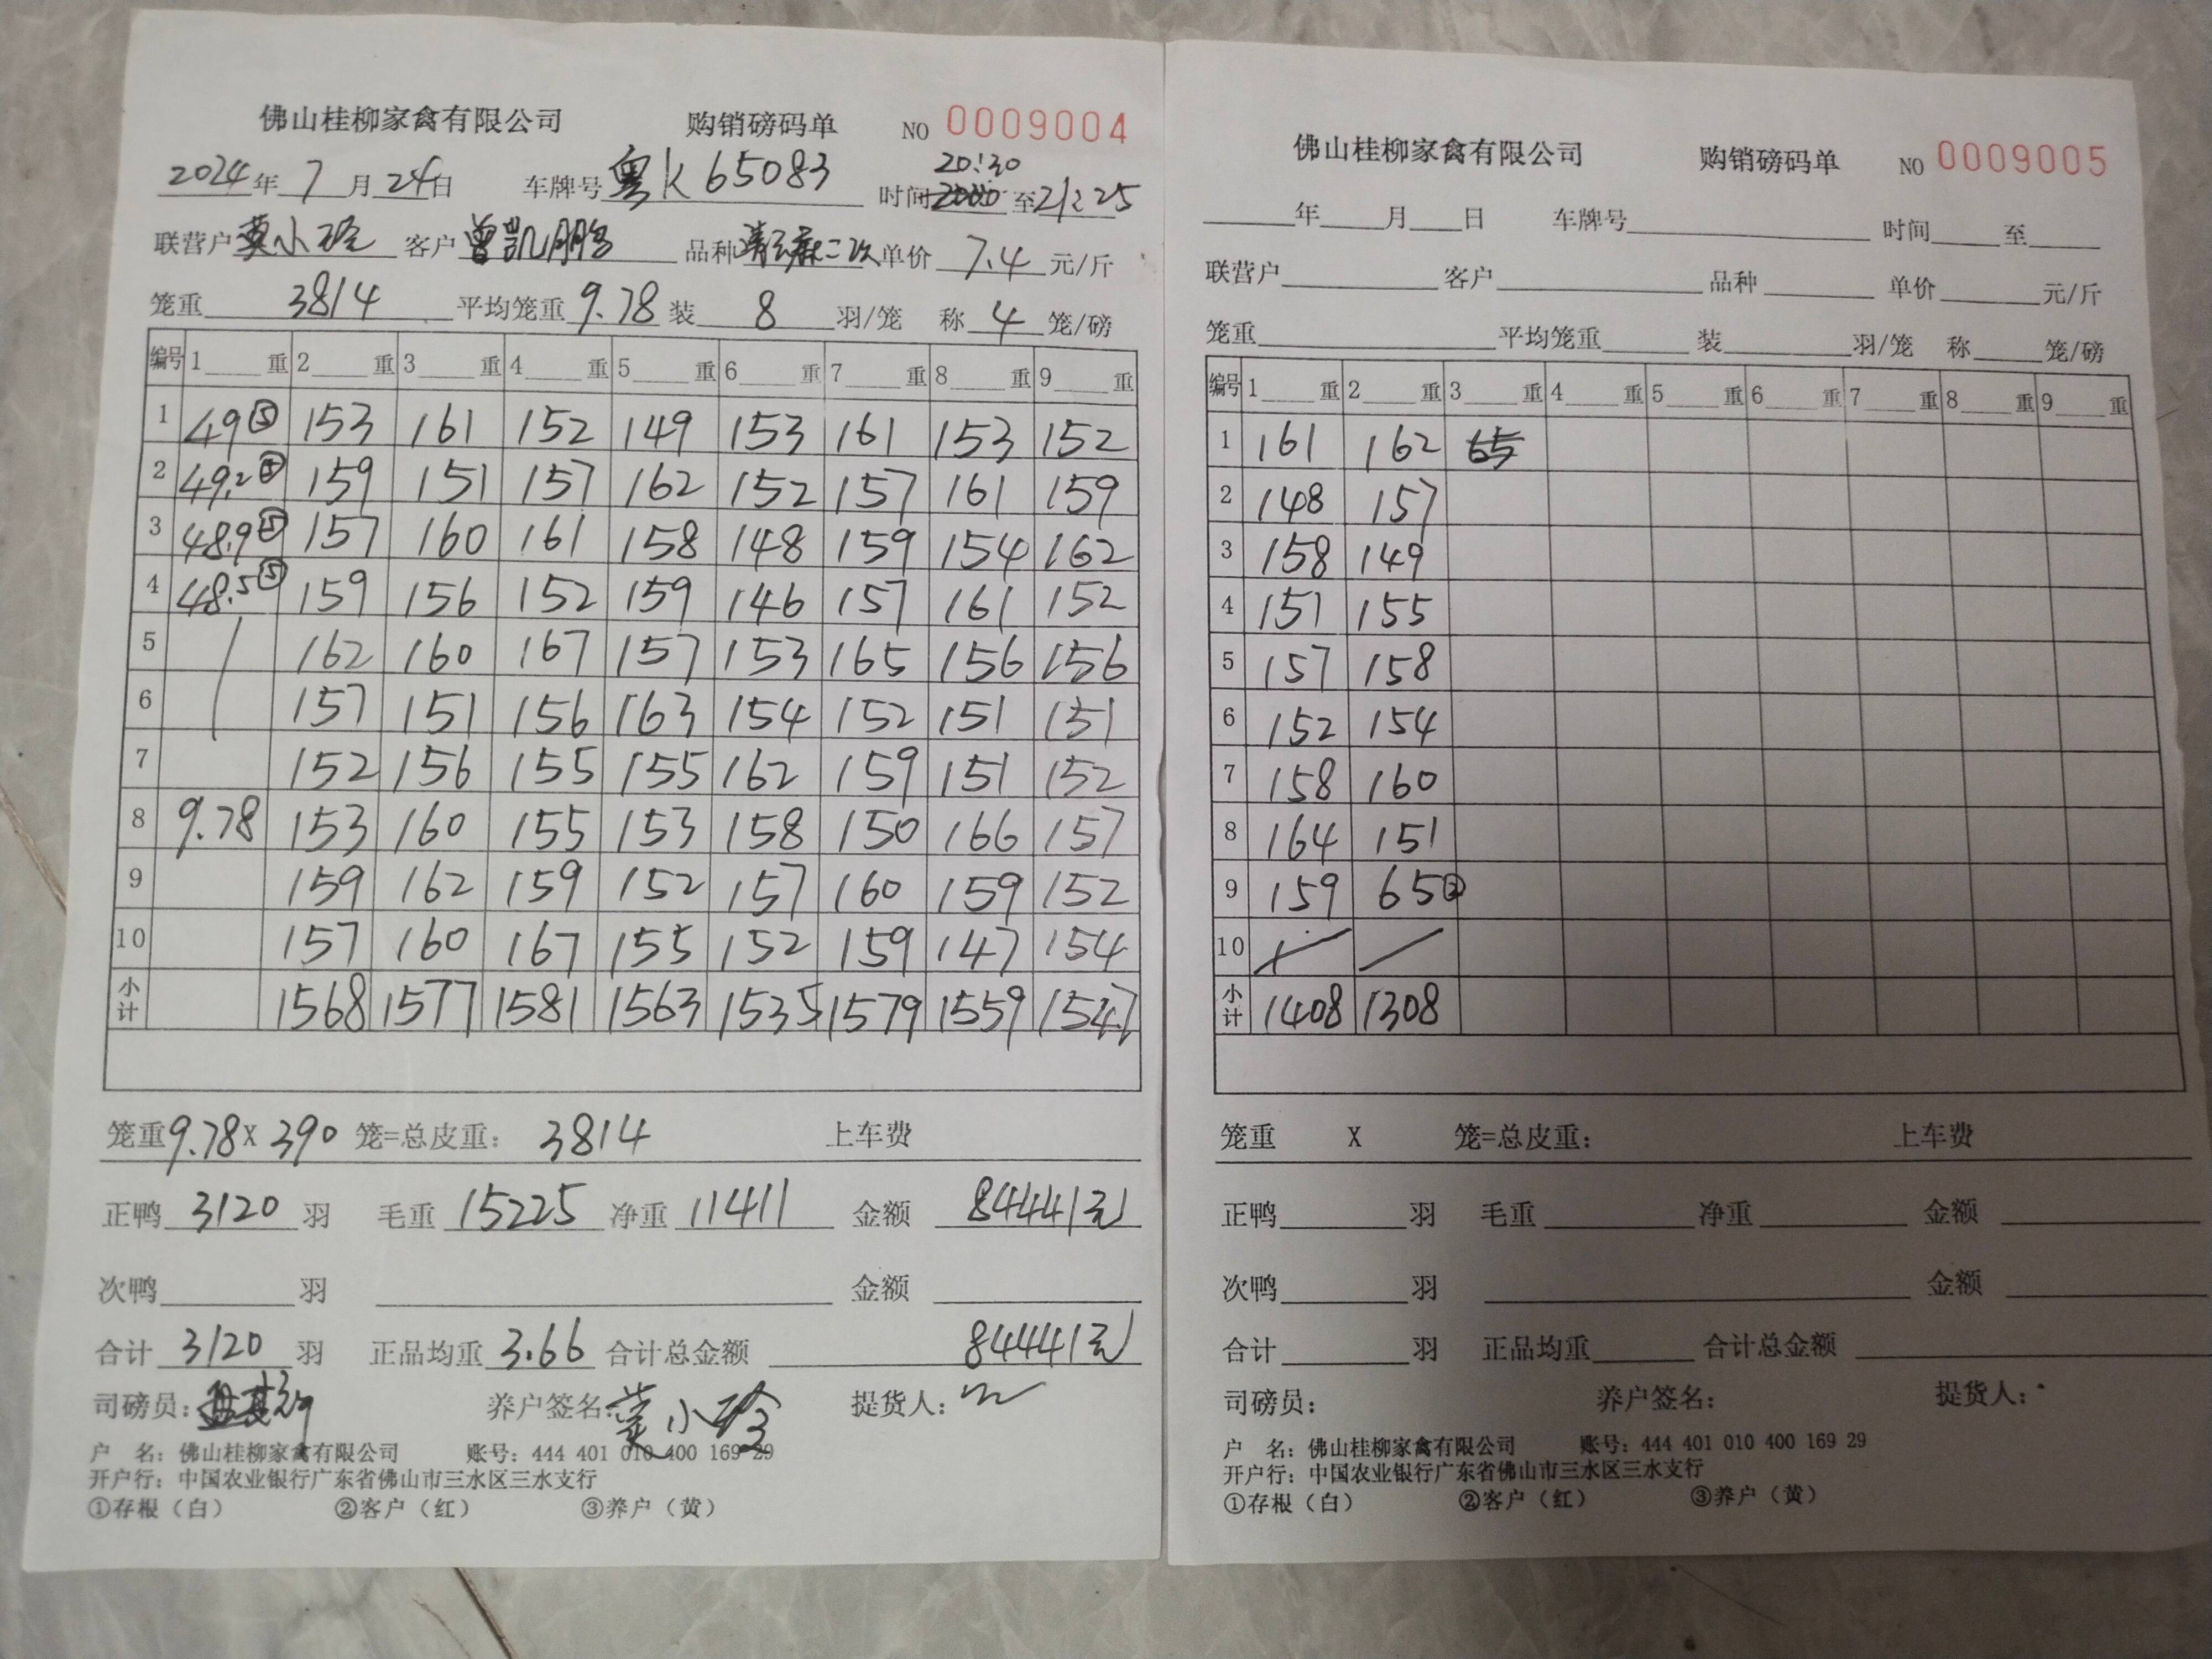 佛山桂柳家禽有限公司 购销磅码单 NO 0009004
2024年 7 月 24日 车牌号 粤K65083 时间 20:30 至 21:25
联营户 莫小玲 客户 曾凯鹏 品种 二次 单价 7.4 元/斤
笼重 3814 平均笼重 9.78 装 8 羽/笼 称 4 笼/磅
编号 1 重 2 重 3 重 4 重 5 重 6 重 7 重 8 重 9 重
1 49⑤ 153 161 152 149 153 161 153 152
2 49.2⑤ 159 151 157 162 152 157 161 159
3 48.9⑤ 157 160 161 158 148 159 154 162
4 48.5⑤ 159 156 152 159 146 157 161 152
5 162 160 167 157 153 165 156 156
6 157 151 156 163 154 152 151 151
7 152 156 155 155 162 159 151 152
8 9.78 153 160 155 153 158 150 166 157
9 159 162 159 152 157 160 159 152
10 157 160 167 155 152 159 147 154
小计 1568 1577 1581 1563 1535 1579 1559 1547
笼重 9.78 X 390 笼=总皮重: 3814 上车费
正鸭 3120 羽 毛重 15225 净重 11411 金额 84441元
次鸭 羽 金额
合计 3120 羽 正品均重 3.66 合计总金额 84441元
司磅员: 养户签名: 莫小玲 提货人:
户 名: 佛山桂柳家禽有限公司 账号: 444 401 010 400 169 29
开户行: 中国农业银行广东省佛山市三水区三水支行
①存根（白） ②客户（红） ③养户（黄）
佛山桂柳家禽有限公司 购销磅码单 NO 0009005
年 月 日 车牌号 时间 至
联营户 客户 品种 单价 元/斤
笼重 平均笼重 装 羽/笼 称 笼/磅
编号 1 重 2 重 3 重 4 重 5 重 6 重 7 重 8 重 9 重
1 161 162 65
2 148 157
3 158 149
4 151 155
5 157 158
6 152 154
7 158 160
8 164 151
9 159 65②
10
小计 1408 1308
笼重 X 笼=总皮重: 上车费
正鸭 羽 毛重 净重 金额
次鸭 羽 金额
合计 羽 正品均重 合计总金额
司磅员: 养户签名: 提货人:
户 名: 佛山桂柳家禽有限公司 账号: 444 401 010 400 169 29
开户行: 中国农业银行广东省佛山市三水区三水支行
①存根（白） ②客户（红） ③养户（黄）